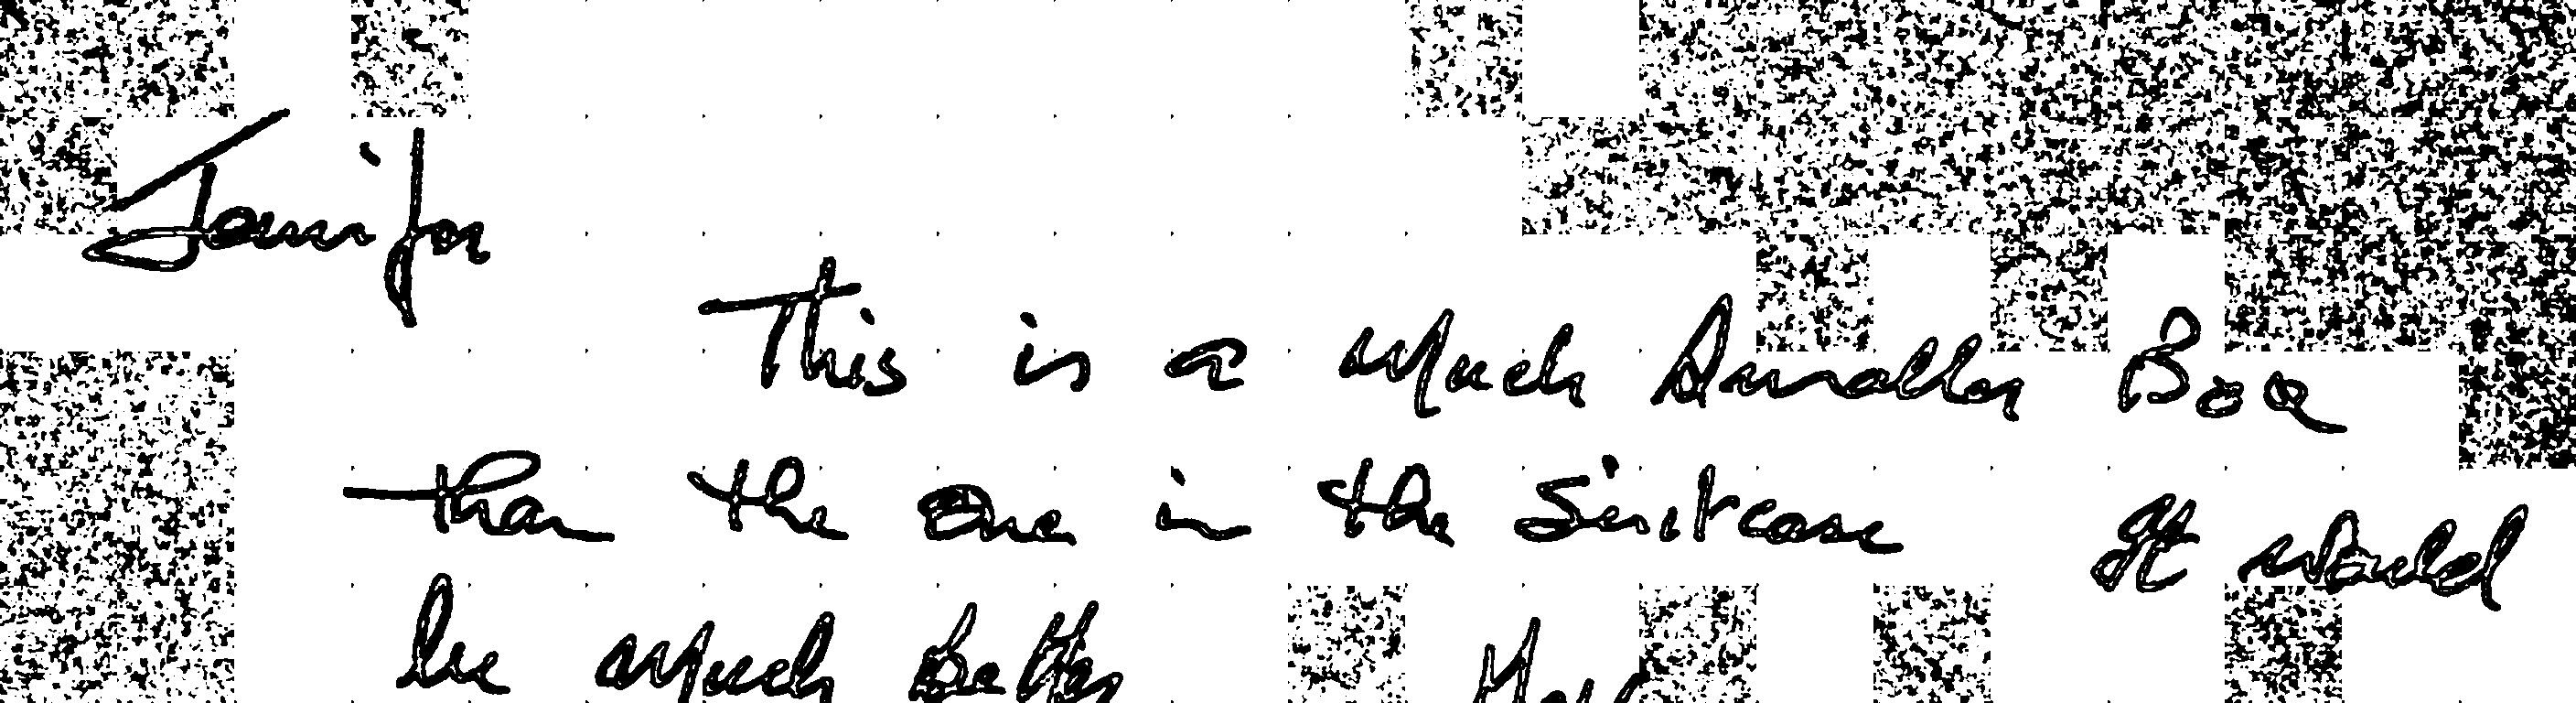 Jennifer
This is a much smaller Box
than the one in the Suitcase It would
be much better